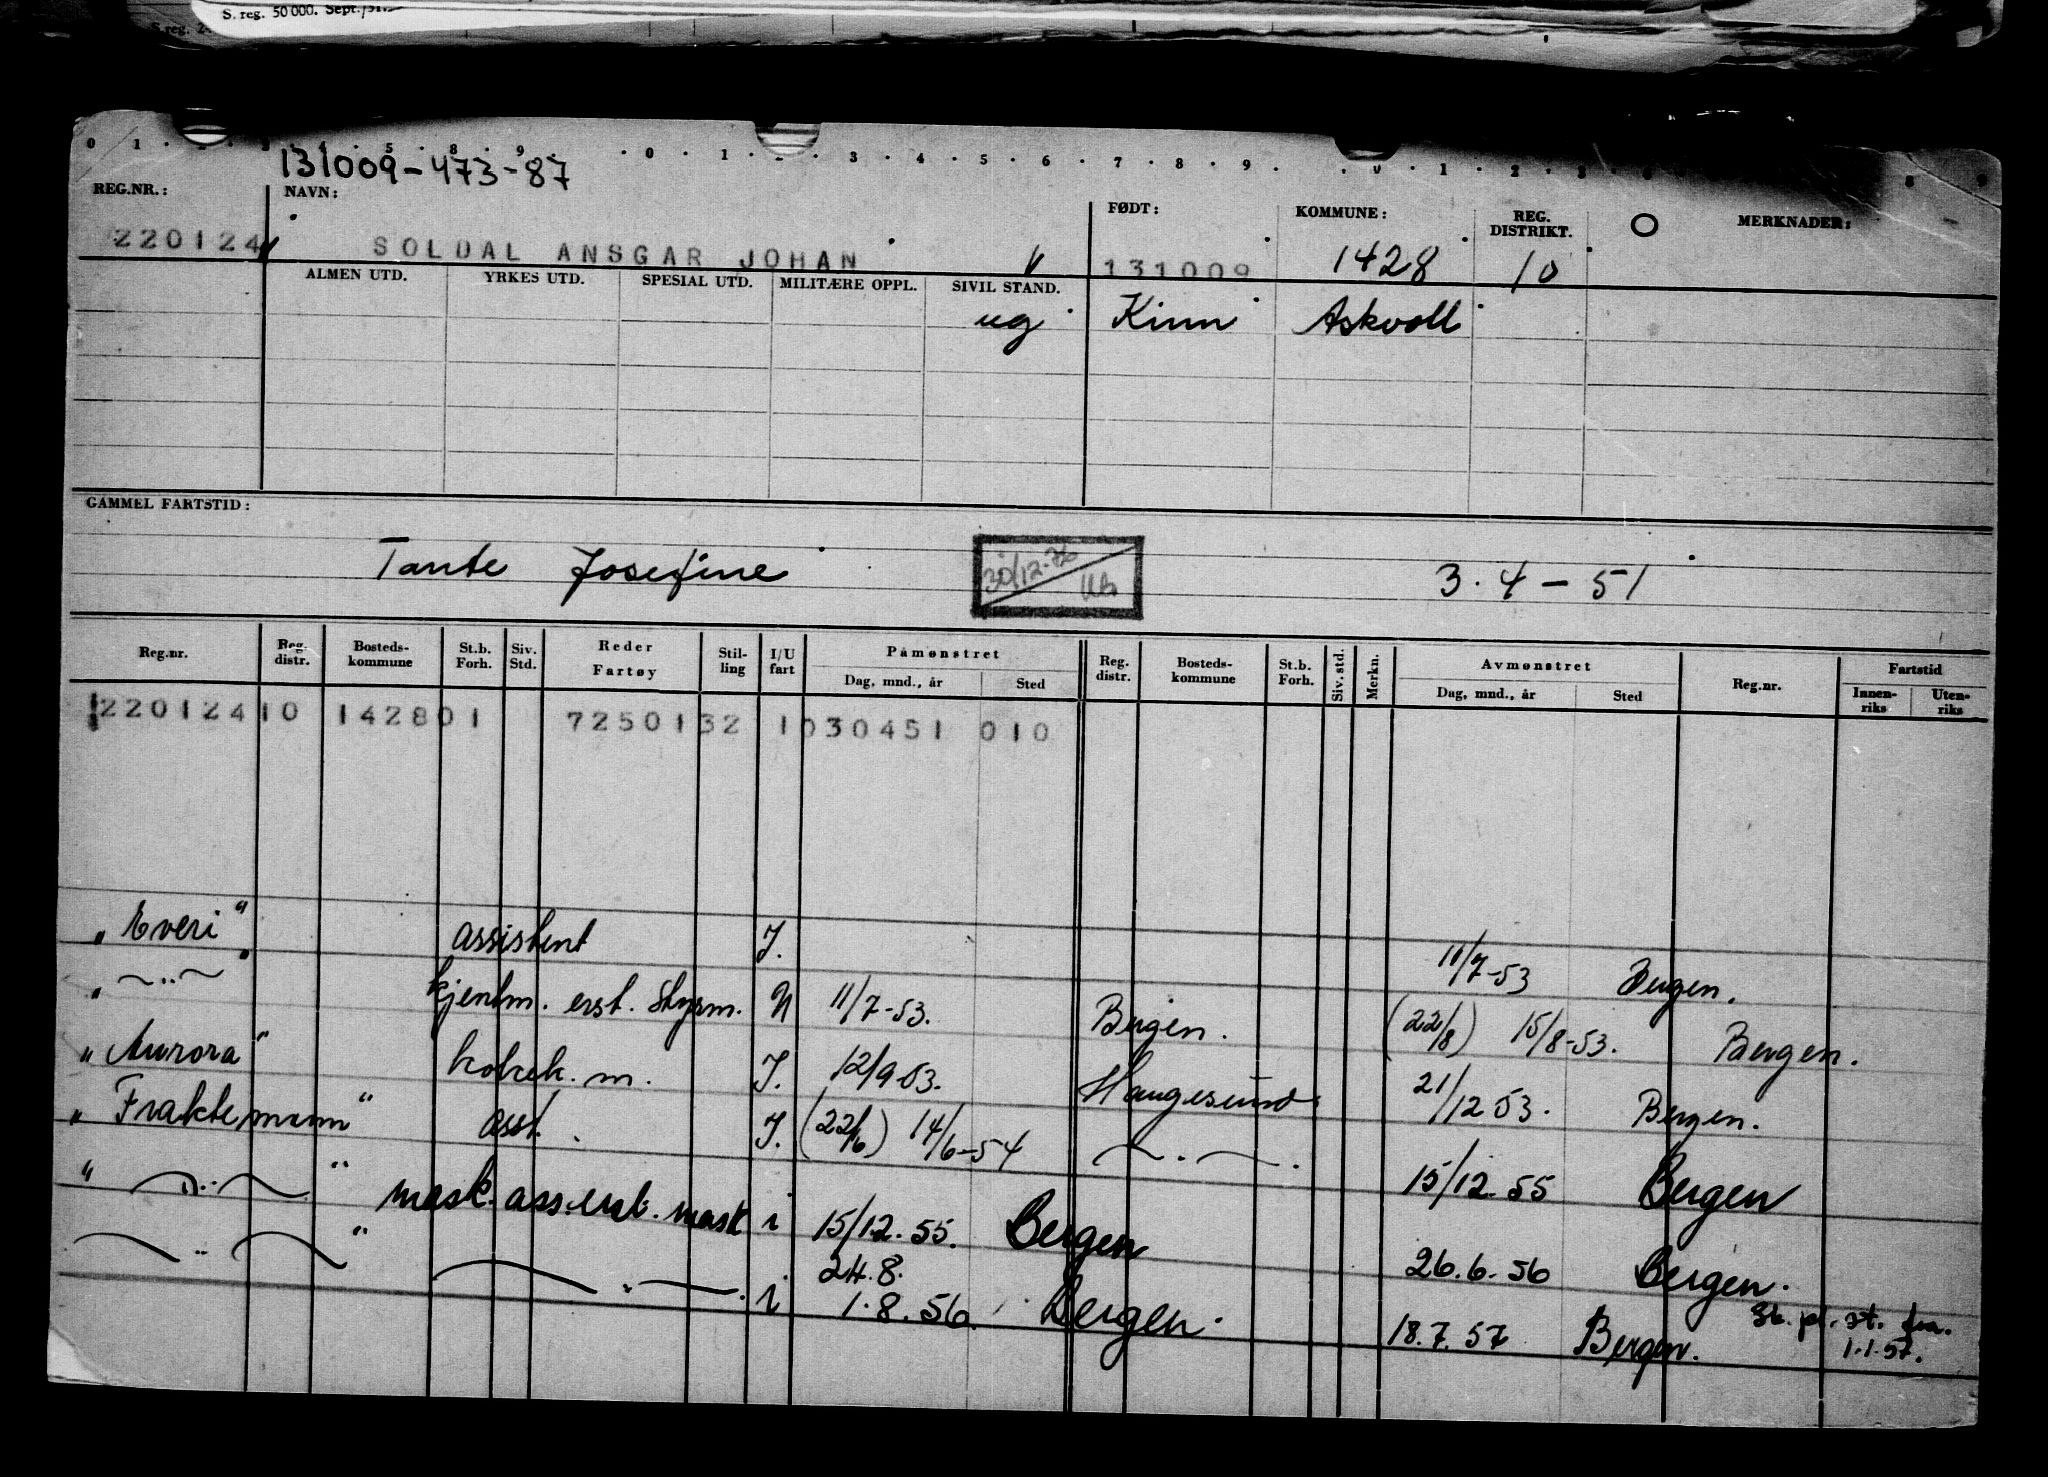 S. reg. 50 000. Sept./51.
S. reg. 2
0 1 5 8 9 0 1 2 3 4 5 6 7 8 9 0 1 2 3 8 9
131009-473-87
REG.NR.: NAVN: FØDT: KOMMUNE: REG. DISTRIKT. O MERKNADER:
220124 SOLDAL ANSGAR JOHAN 131009 1428 10
ALMEN UTD. YRKES UTD. SPESIAL UTD. MILITÆRE OPPL. SIVIL STAND.
ug Kinn Askvoll
GAMMEL FARTSTID:
Tante Josefine 30/12-76 3.4-51
Reg.nr. Reg. distr. Bosteds-kommune St.b. Forh. Siv. Std. Reder Fartøy Stil-ling I/U fart Påmønstret Reg. distr. Bosteds-kommune St.b. Forh. Siv. std. Merkn. Avmønstret Reg.nr. Fartstid
Dag, mnd., år Sted Dag, mnd., år Sted Innen-riks Uten-riks
220124 10 1428 01 7250132 1 030451 010
"Everi" assistent I. 11/7-53 Bergen.
" — " — " kjentm. erst. styrm. N 11/7-53. Bergen. (22/8) 15/8-53. Bergen.
"Aurora" kokek. m. I. 12/9-53. Haugesund 21/12 53. Bergen.
"Fraktemann" asst. I. (22/6) 14/6-54 — " — . 15/12. 55 Bergen
" — " — " mask. ass. erst. mask i 15/12. 55. Bergen 26.6.56 Bergen.
— " — " — " — . i 24.8.
1.8.56. Bergen. 18.7.57 Bergen. st. fra. 1.1.57.